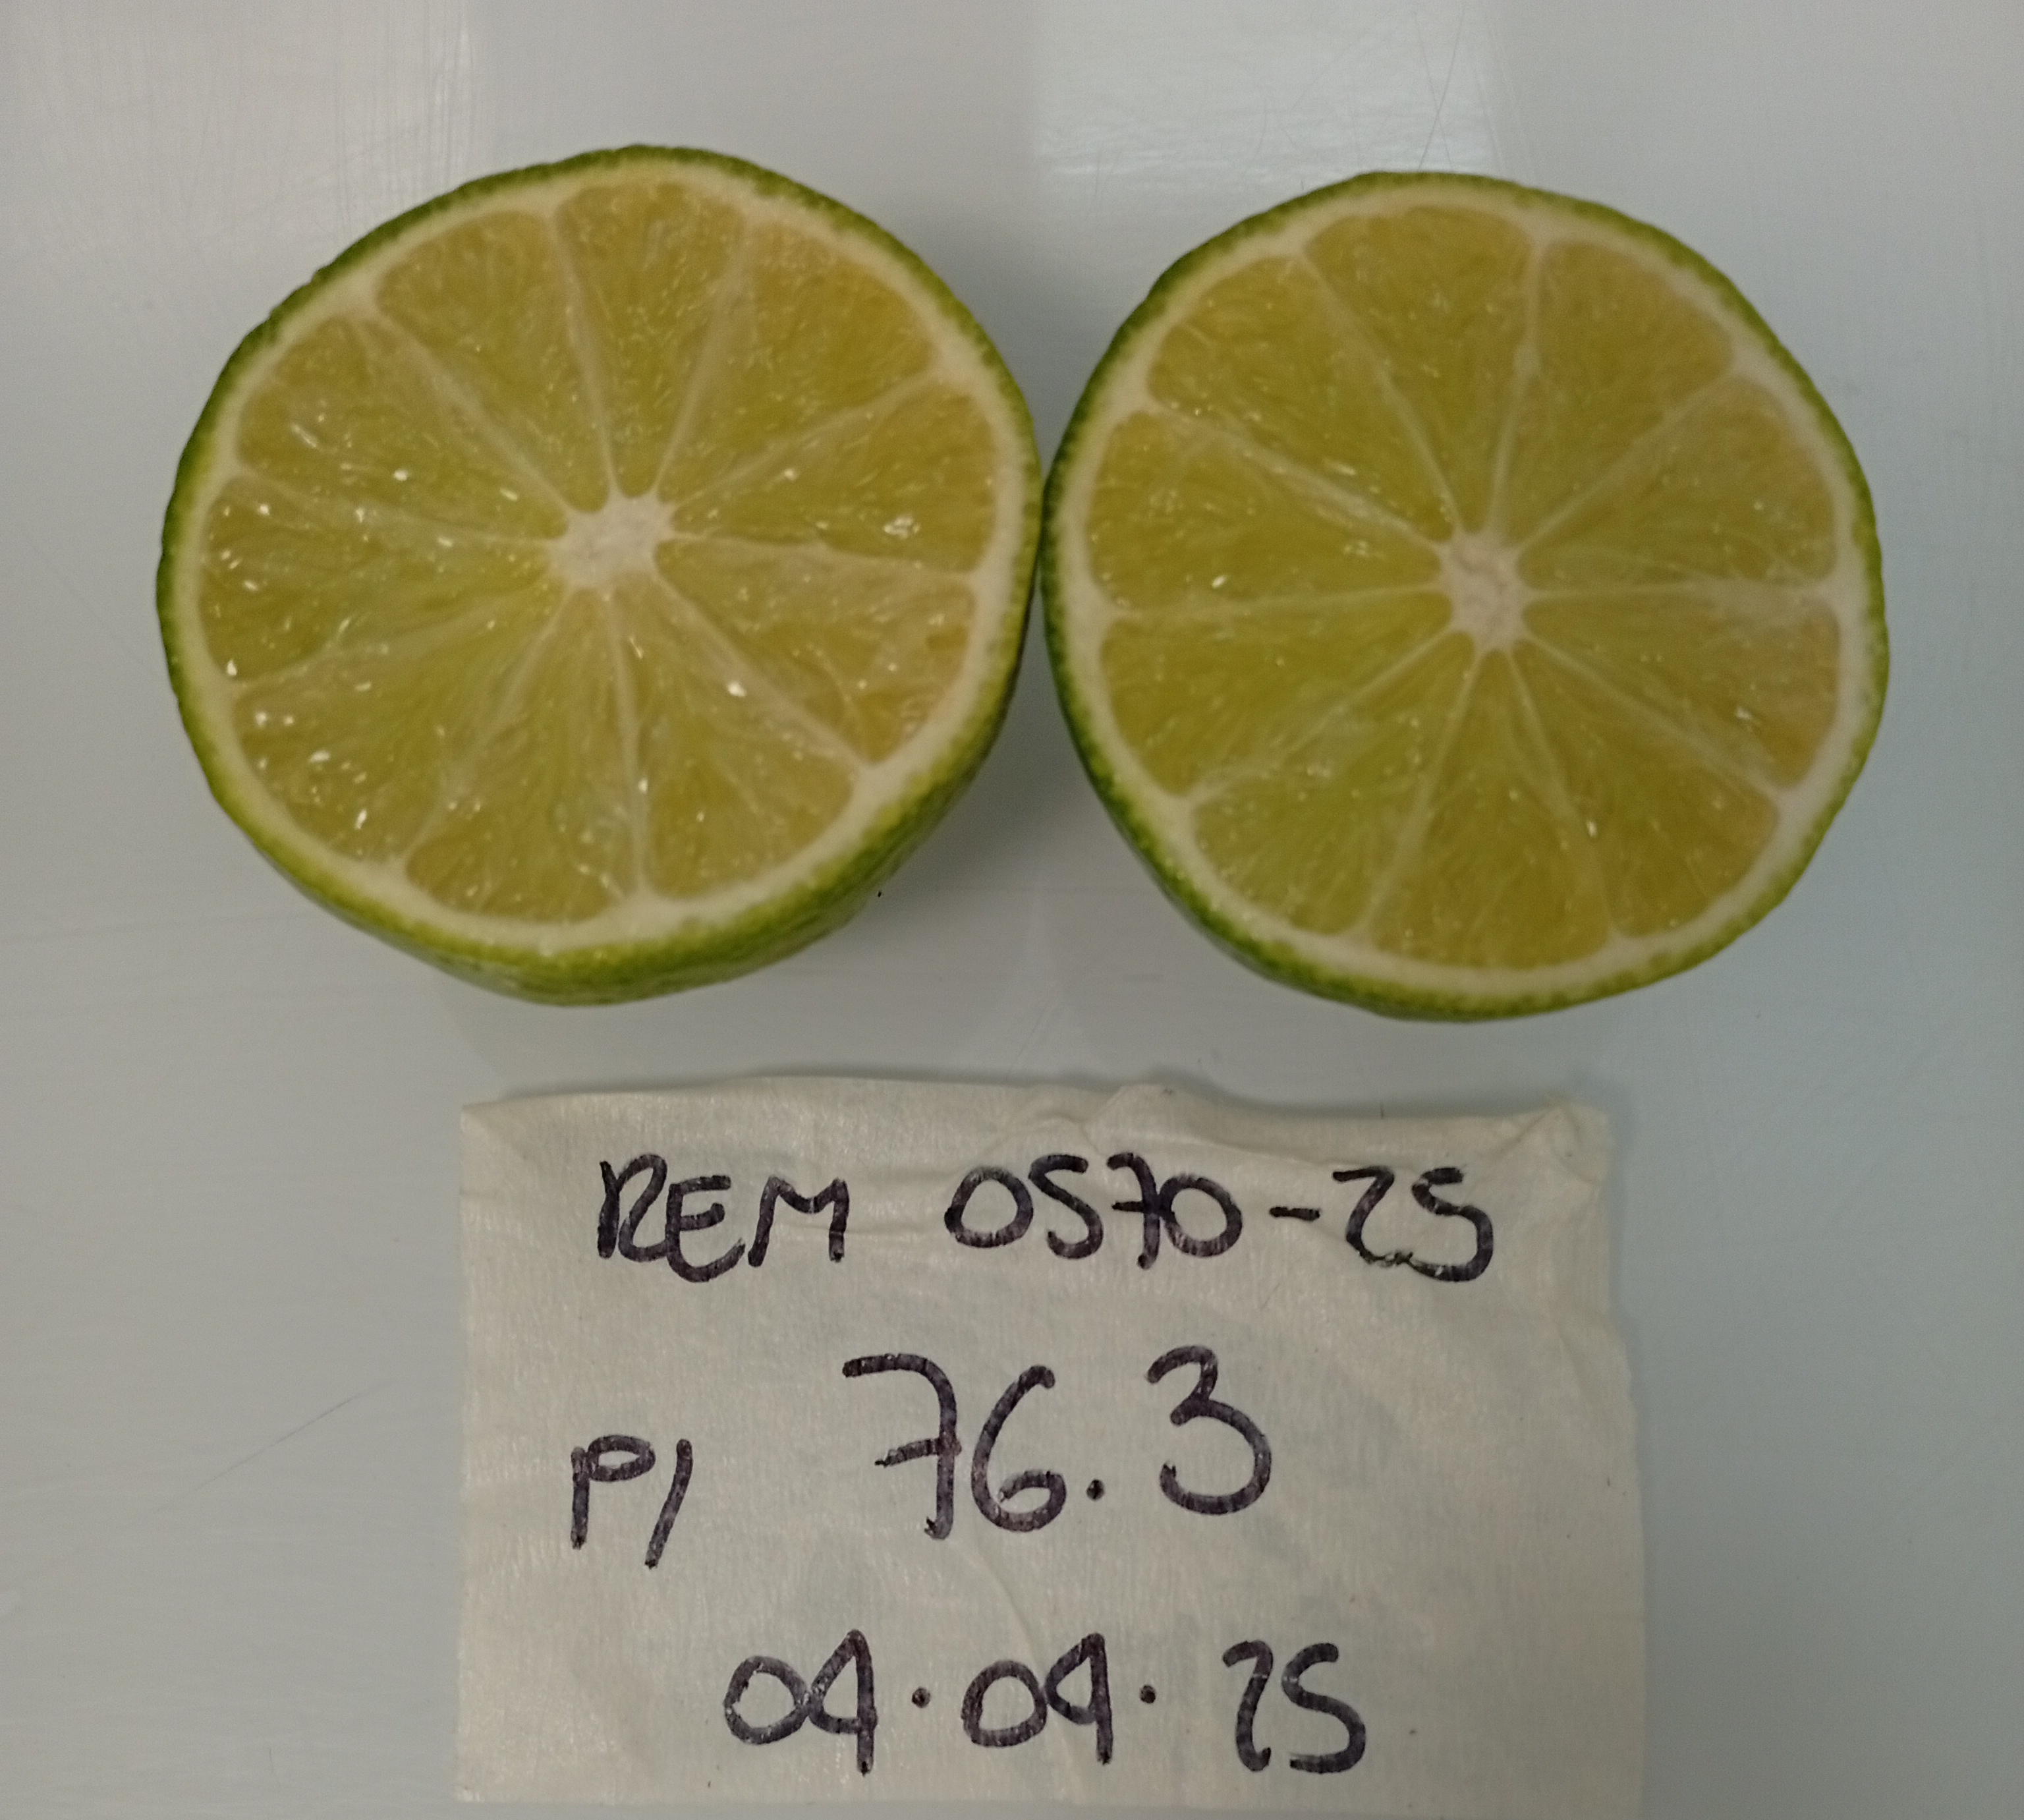 REM 0570-25
P/ 76.3
04.04.25